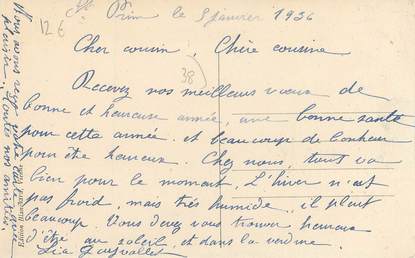 St Prim le 5 janvier 1936
12 €
Cher cousin, Chère cousine
38
Recevez nos meilleurs vœux de
bonne et heureuse année, une bonne santé
pour cette année et beaucoup de bonheur
pour être heureux. Chez nous, tout va
bien pour le moment. L'hiver n'est
pas froid, mais très humide, il pleut
beaucoup. Vous devez vous trouver heureux
d'été au soleil, et dans la verdure.
Nous avons reçu votre carte avec
plaisir. Toutes nos amitiés.
Editions Blanchard